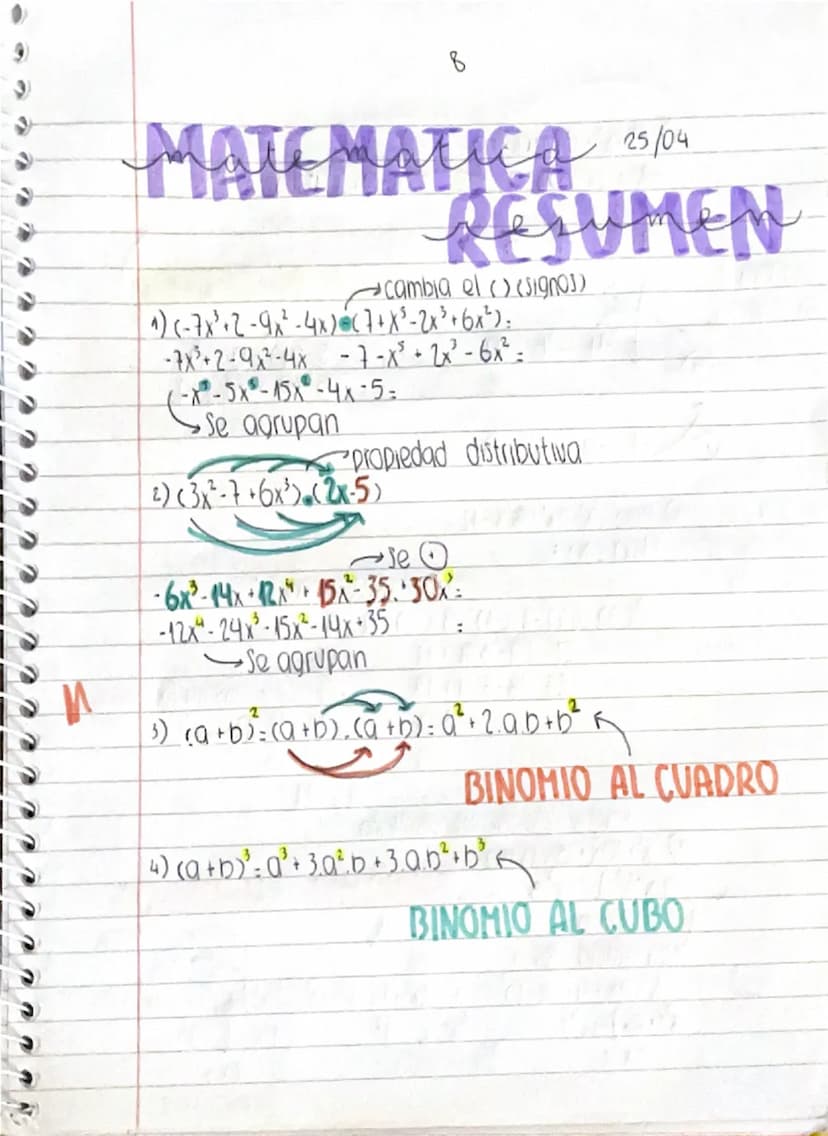 8
MATEMATICA
matematica 25/04
RESUMEN
resumen
→cambia el () (signos)
1) (-7x³+2-9x²-4x)-(7+x⁵-2x³+6x²):
-7x³+2-9x²-4x -7-x⁵+2x³-6x²=
-5x -15x -4x-5=
→Se agrupan
→propiedad distributiva
2) (3x²-7+6x³).(2x-5)
→se (+)
-6x³-14x+12x⁴+15x²-35.+30x³=
-12x⁴-24x³-15x²-14x+35 :
→Se agrupan
3) (a+b)²=(a+b).(a+b)=a²+2.a.b+b²
BINOMIO AL CUADRO
4) (a+b)³=a³+3.a².b+3.a.b²+b³
BINOMIO AL CUBO